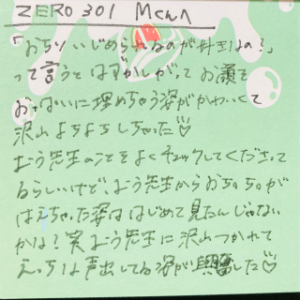 ZERO 301 Mくんへ
「おちりいじめられるのが好きなの?」
って言うとはずかしがって お顔を
おっぱいに埋めちゃう姿がかわいくて
沢山よちよちしちゃった♡
おう先生のことをよくチェックしてくださって
るらしいけど、おう先生からおちちが
はえちゃった姿ははじめて見たんじゃない
かな!実おう先生に沢山つかれて
えっちな声出してる姿が興奮した♡